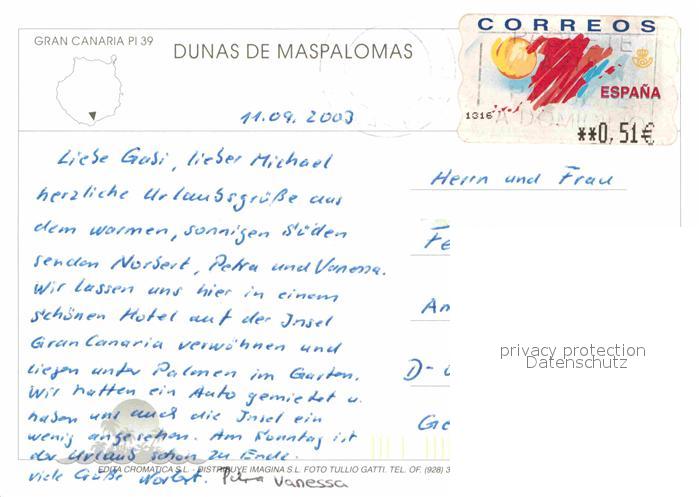 GRAN CANARIA PI 39
DUNAS DE MASPALOMAS
CORREOS
ESPAÑA
1316
**0,51€
11.09.2003
Liebe Gabi, lieber Michael
herzliche Urlaubsgrüße aus
dem warmen, sonnigen Süden
senden Norbert, Petra und Vanessa.
Wir lassen uns hier in einem
schönen Hotel auf der Insel
Gran Canaria verwöhnen und
liegen unter Palmen im Garten.
Wir hatten ein Auto gemietet u.
haben uns auch die Insel ein
wenig angesehen. Am Sonntag ist
der Urlaub schon zu Ende.
viele Grüße Norbert. Petra Vanessa
Herrn und Frau
Fe
An
D-
Ge
privacy protection
Datenschutz
EDITA CROMATICA S.L. - DISTRIBUYE IMAGINA S.L. FOTO TULLIO GATTI. TEL. OF. (928) 3